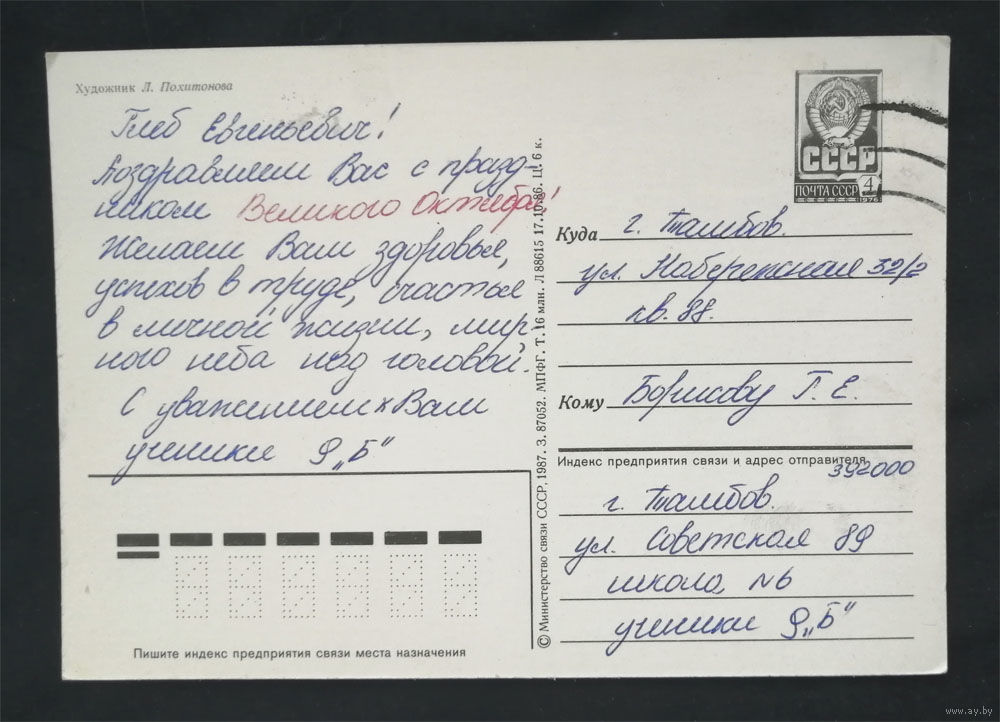 Художник Л. Похитонова
Глеб Евгеньевич!
Поздравляем Вас с празд-
ником Великого Октября!
Желаем Вам здоровья,
успехов в труде, счастья
в личной жизни, мир-
ного неба над головой.
С уважением к Вам
ученики 9 „Б"
Пишите индекс предприятия связи места назначения
© Министерство связи СССР, 1987. З. 87052. МПФГ. Т. 16 млн. Л 88615 17.10.86. Ц. 6 к.
СССР
ПОЧТА СССР 4
1976
Куда г. Тамбов.
ул. Набережная 32/2
кв. 88.
Кому Борисову Г. Е.
Индекс предприятия связи и адрес отправителя
392000
г. Тамбов.
ул. Советская 89
школа №6
ученики 9 „Б"
www.ay.by